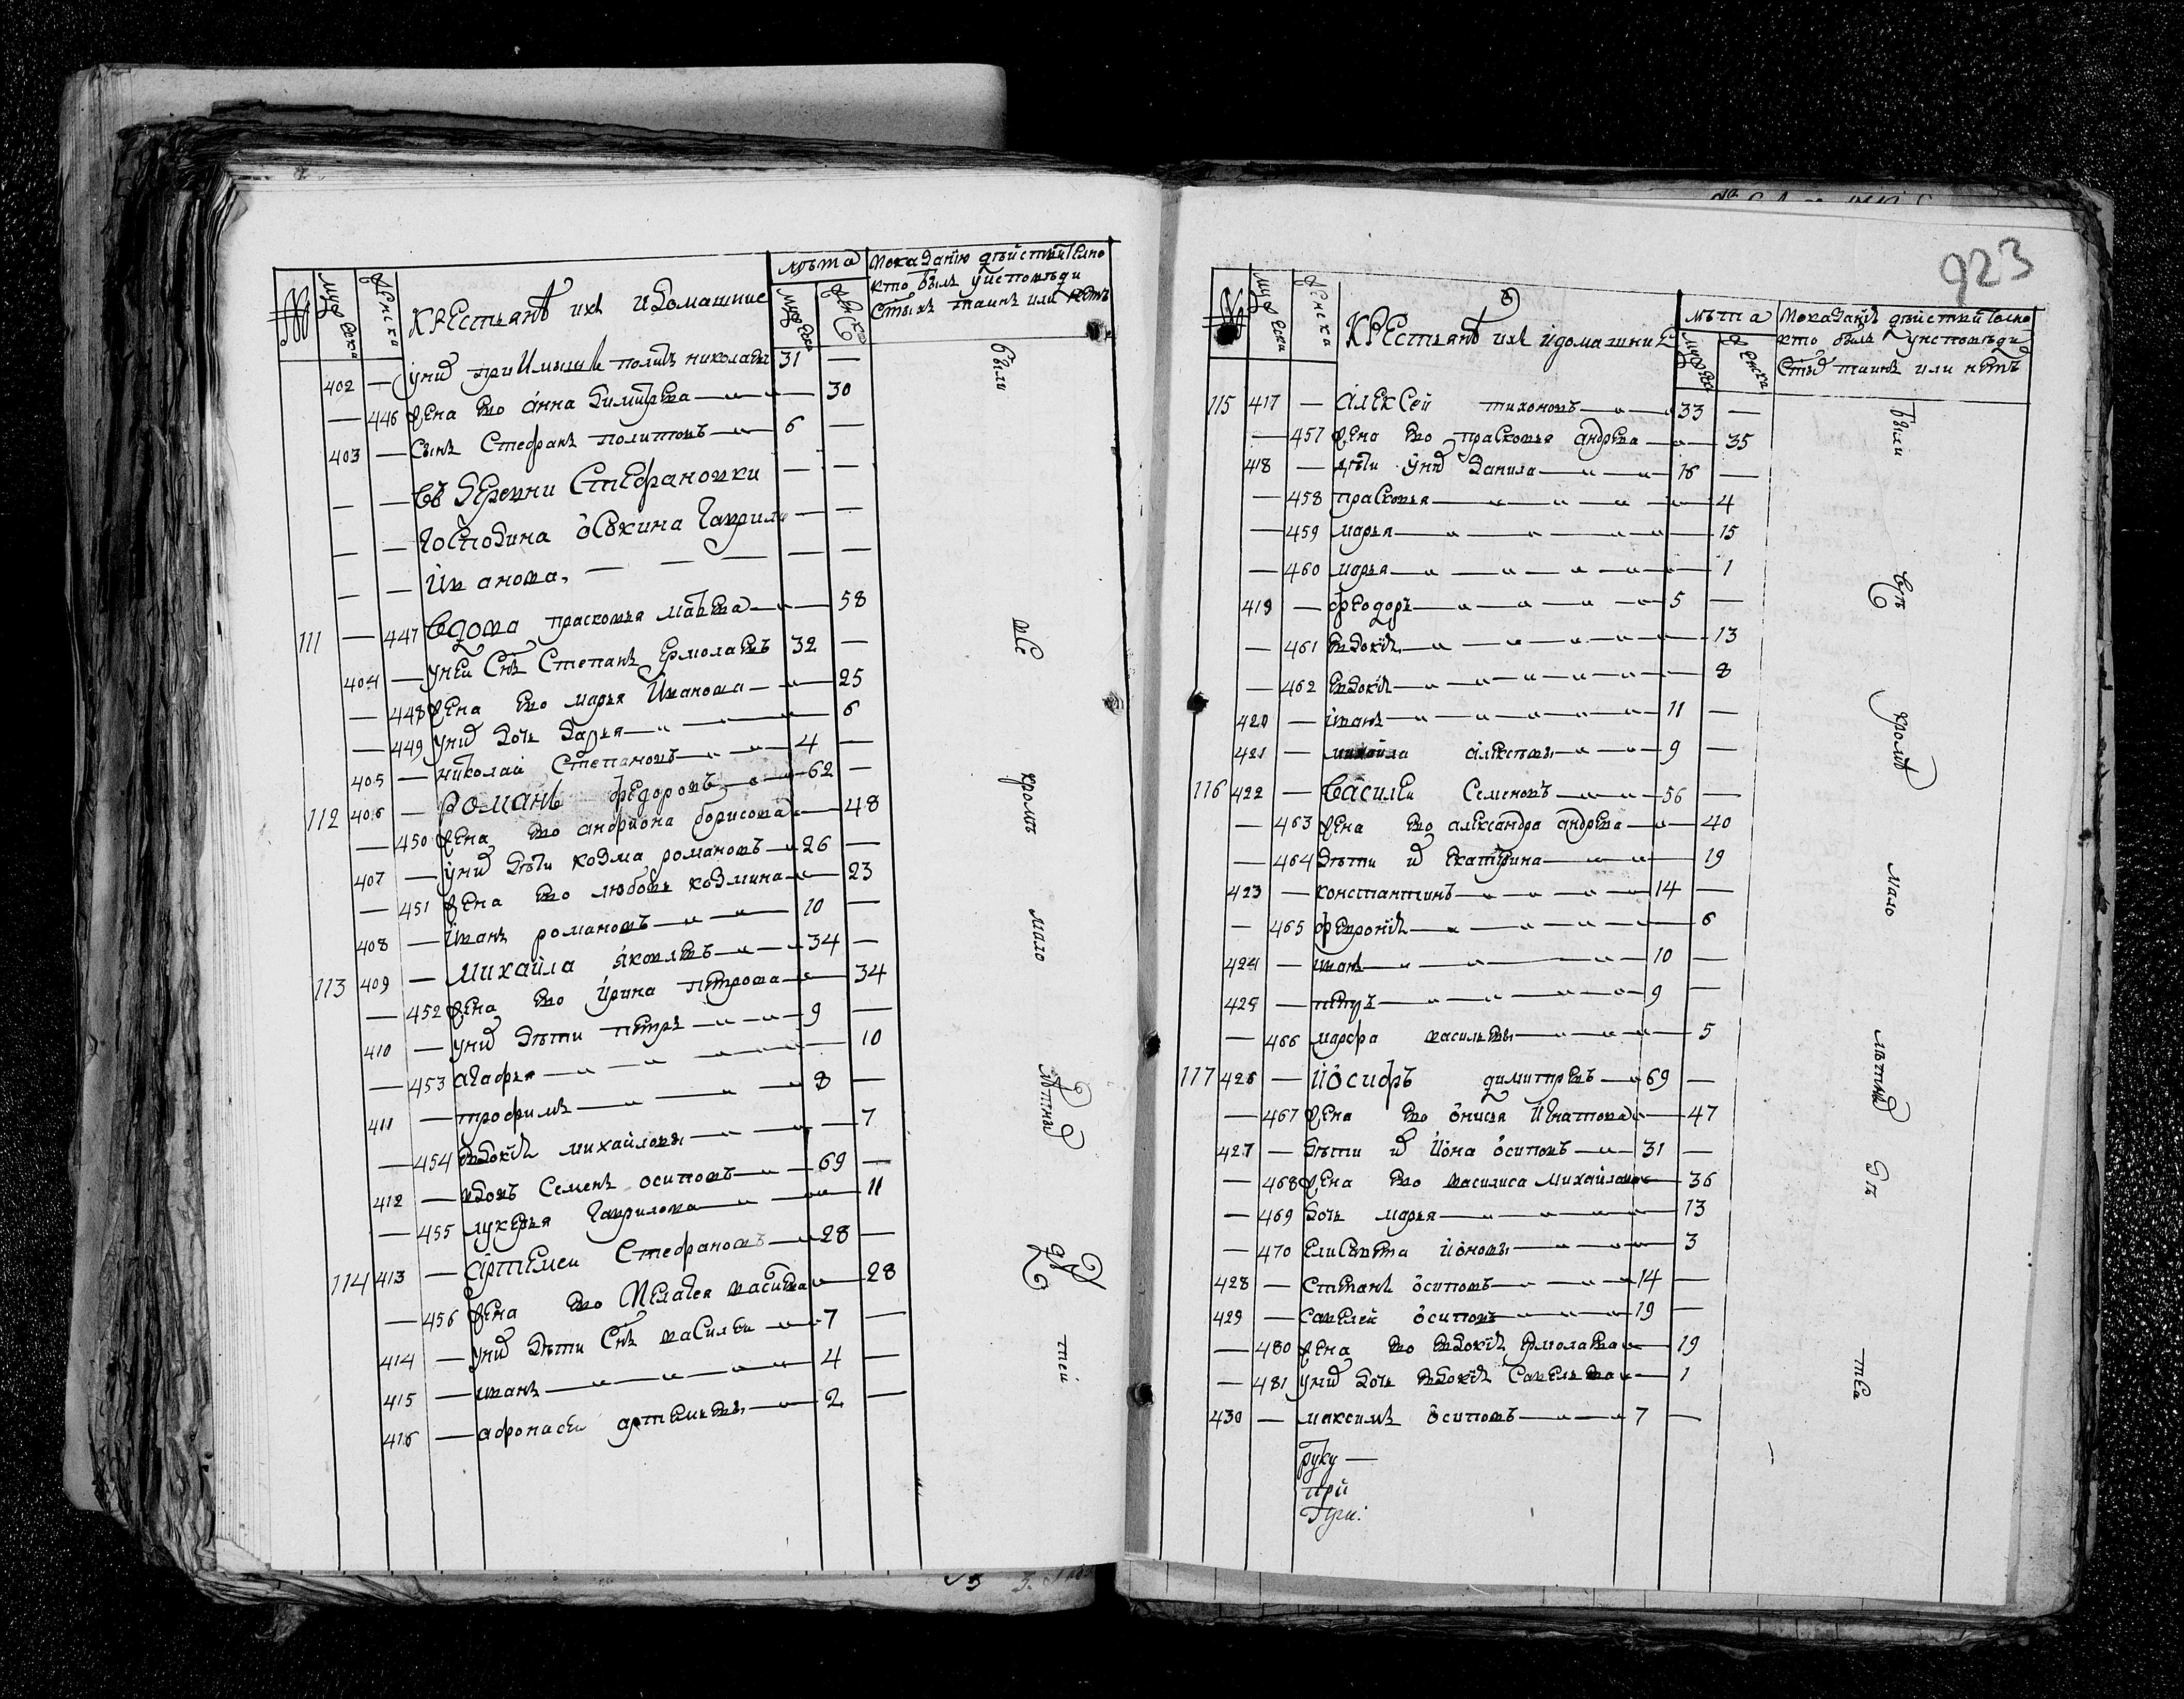 № мужска женска Крестьянъ ихъ и домашние лѣта мужска женска Показанїю дѣйствително
кто былъ у исповѣди
с̃тыхъ таинъ или нетъ
402 — у них приимышъ политъ николаевъ 31 —
— 446 жена ево анна димитрева — 30
403 — сынъ стефанъ политовъ 6 —
— — въ деревни стефановки — —
— — господина осокина гаврилы — —
— — иванова, — —
111 — 447 вдова прасковья матвева — 58
404 — у неи с̃нъ степанъ ермолаевъ 32 —
— 448 жена ево марья иванова — 25
— 449 у них дочь дарья — 6
405 — николаи степановъ 4 —
112 406 — романъ федоровъ 62 —
— 450 жена ево андриона борисова — 48
407 — у них дѣти козма романовъ 26 —
— 451 жена ево любовь козмина — 23
408 — иванъ романовъ 10 —
113 409 — михаила яковлевъ 34 —
— 452 жена ево ирина петрова — 34
410 — у них дѣти петръ 9 —
— 453 агафья — 10
411 — трофимъ 8 —
— 454 евдокїя михаиловы — 7
412 — вдовъ семенъ осиповъ 69 —
— 455 лукерья гаврилова — 11
114 413 — артемеи стефановъ 28 —
— 456 жена ево пелагея васильева — 28
414 — у них дѣти с̃нъ василеи 7 —
415 — иванъ 4 —
416 — афонасеи артемьевы 2 —
были
все
кромѣ
мало
лѣтных
дѣ
теи
923
№ мужска женска Крестьянъ ихъ и домашние лѣта мужска женска Показанїе дѣйствително
кто былъ у исповѣди
с̃тых таинъ или нетъ
115 417 — алексеи тихоновъ 33 —
— 457 жена ево прасковья андрева — 35
418 — дѣти у них данила 16 —
— 458 прасковья — 4
— 459 марья — 15
— 460 марья — 1
419 — феодоръ 5 —
— 461 евдокїя — 13
— 462 евдокїя — 8
420 — иванъ 11 —
421 — михаила алексевы 9 —
116 422 — василеи семеновъ 56 —
— 463 жена ево александра андрева — 40
— 464 дѣти их екатерина — 19
423 — константинъ 14 —
— 465 февронїя — 6
424 — иванъ 10 —
425 — петръ 9 —
— 466 марфа васильевы — 5
117 426 — иосифъ димитревъ 69 —
— 467 жена ево онисья игнатова — 47
427 — дѣти их иона осиповъ 31 —
— 468 жена ево василиса михаилова — 36
— 469 дочь марья — 13
— 470 елисавета ионовы — 3
428 — степанъ осиповъ 14 —
429 — савелеи осиповъ 19 —
— 480 жена ево евдокїя ермолаева — 19
— 481 у них дочь евдокїя савельева — 1
430 — максимъ осиповъ 7 —
руку —
при
были
всѣ
кромѣ
мало
лѣтных
дѣ
теи